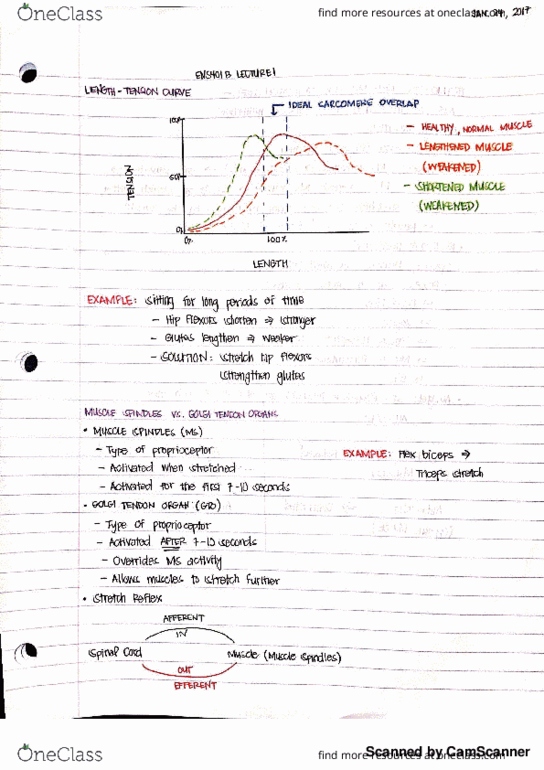 OneClass
find more resources at oneclass.com
JAN. 24, 2017
ENS401 B LECTURE 1
LENGTH-TENSION CURVE
IDEAL SARCOMERE OVERLAP
- HEALTHY, NORMAL MUSCLE
- LENGTHENED MUSCLE
(WEAKENED)
- SHORTENED MUSCLE
(WEAKENED)
TENSION
100%
50%
0%
0%
100%
LENGTH
EXAMPLE: Sitting for long periods of time
- Hip flexors shorten → stronger
- Glutes lengthen → weaker
- SOLUTION: stretch hip flexors
strengthen glutes
MUSCLE SPINDLES VS. GOLGI TENDON ORGANS
• MUSCLE SPINDLES (MS)
- Type of proprioceptor
- Activated when stretched
- Activated for the first 7-10 seconds
EXAMPLE: Flex biceps →
Triceps stretch
• GOLGI TENDON ORGAN (GTO)
- Type of proprioceptor
- Activated AFTER 7-10 seconds
- Overrides MS activity
- Allows muscles to stretch further
• Stretch Reflex
AFFERENT
IN
Spinal Cord
Muscle (Muscle Spindles)
OUT
EFFERENT
OneClass
find more resources at oneclass.com
Scanned by CamScanner